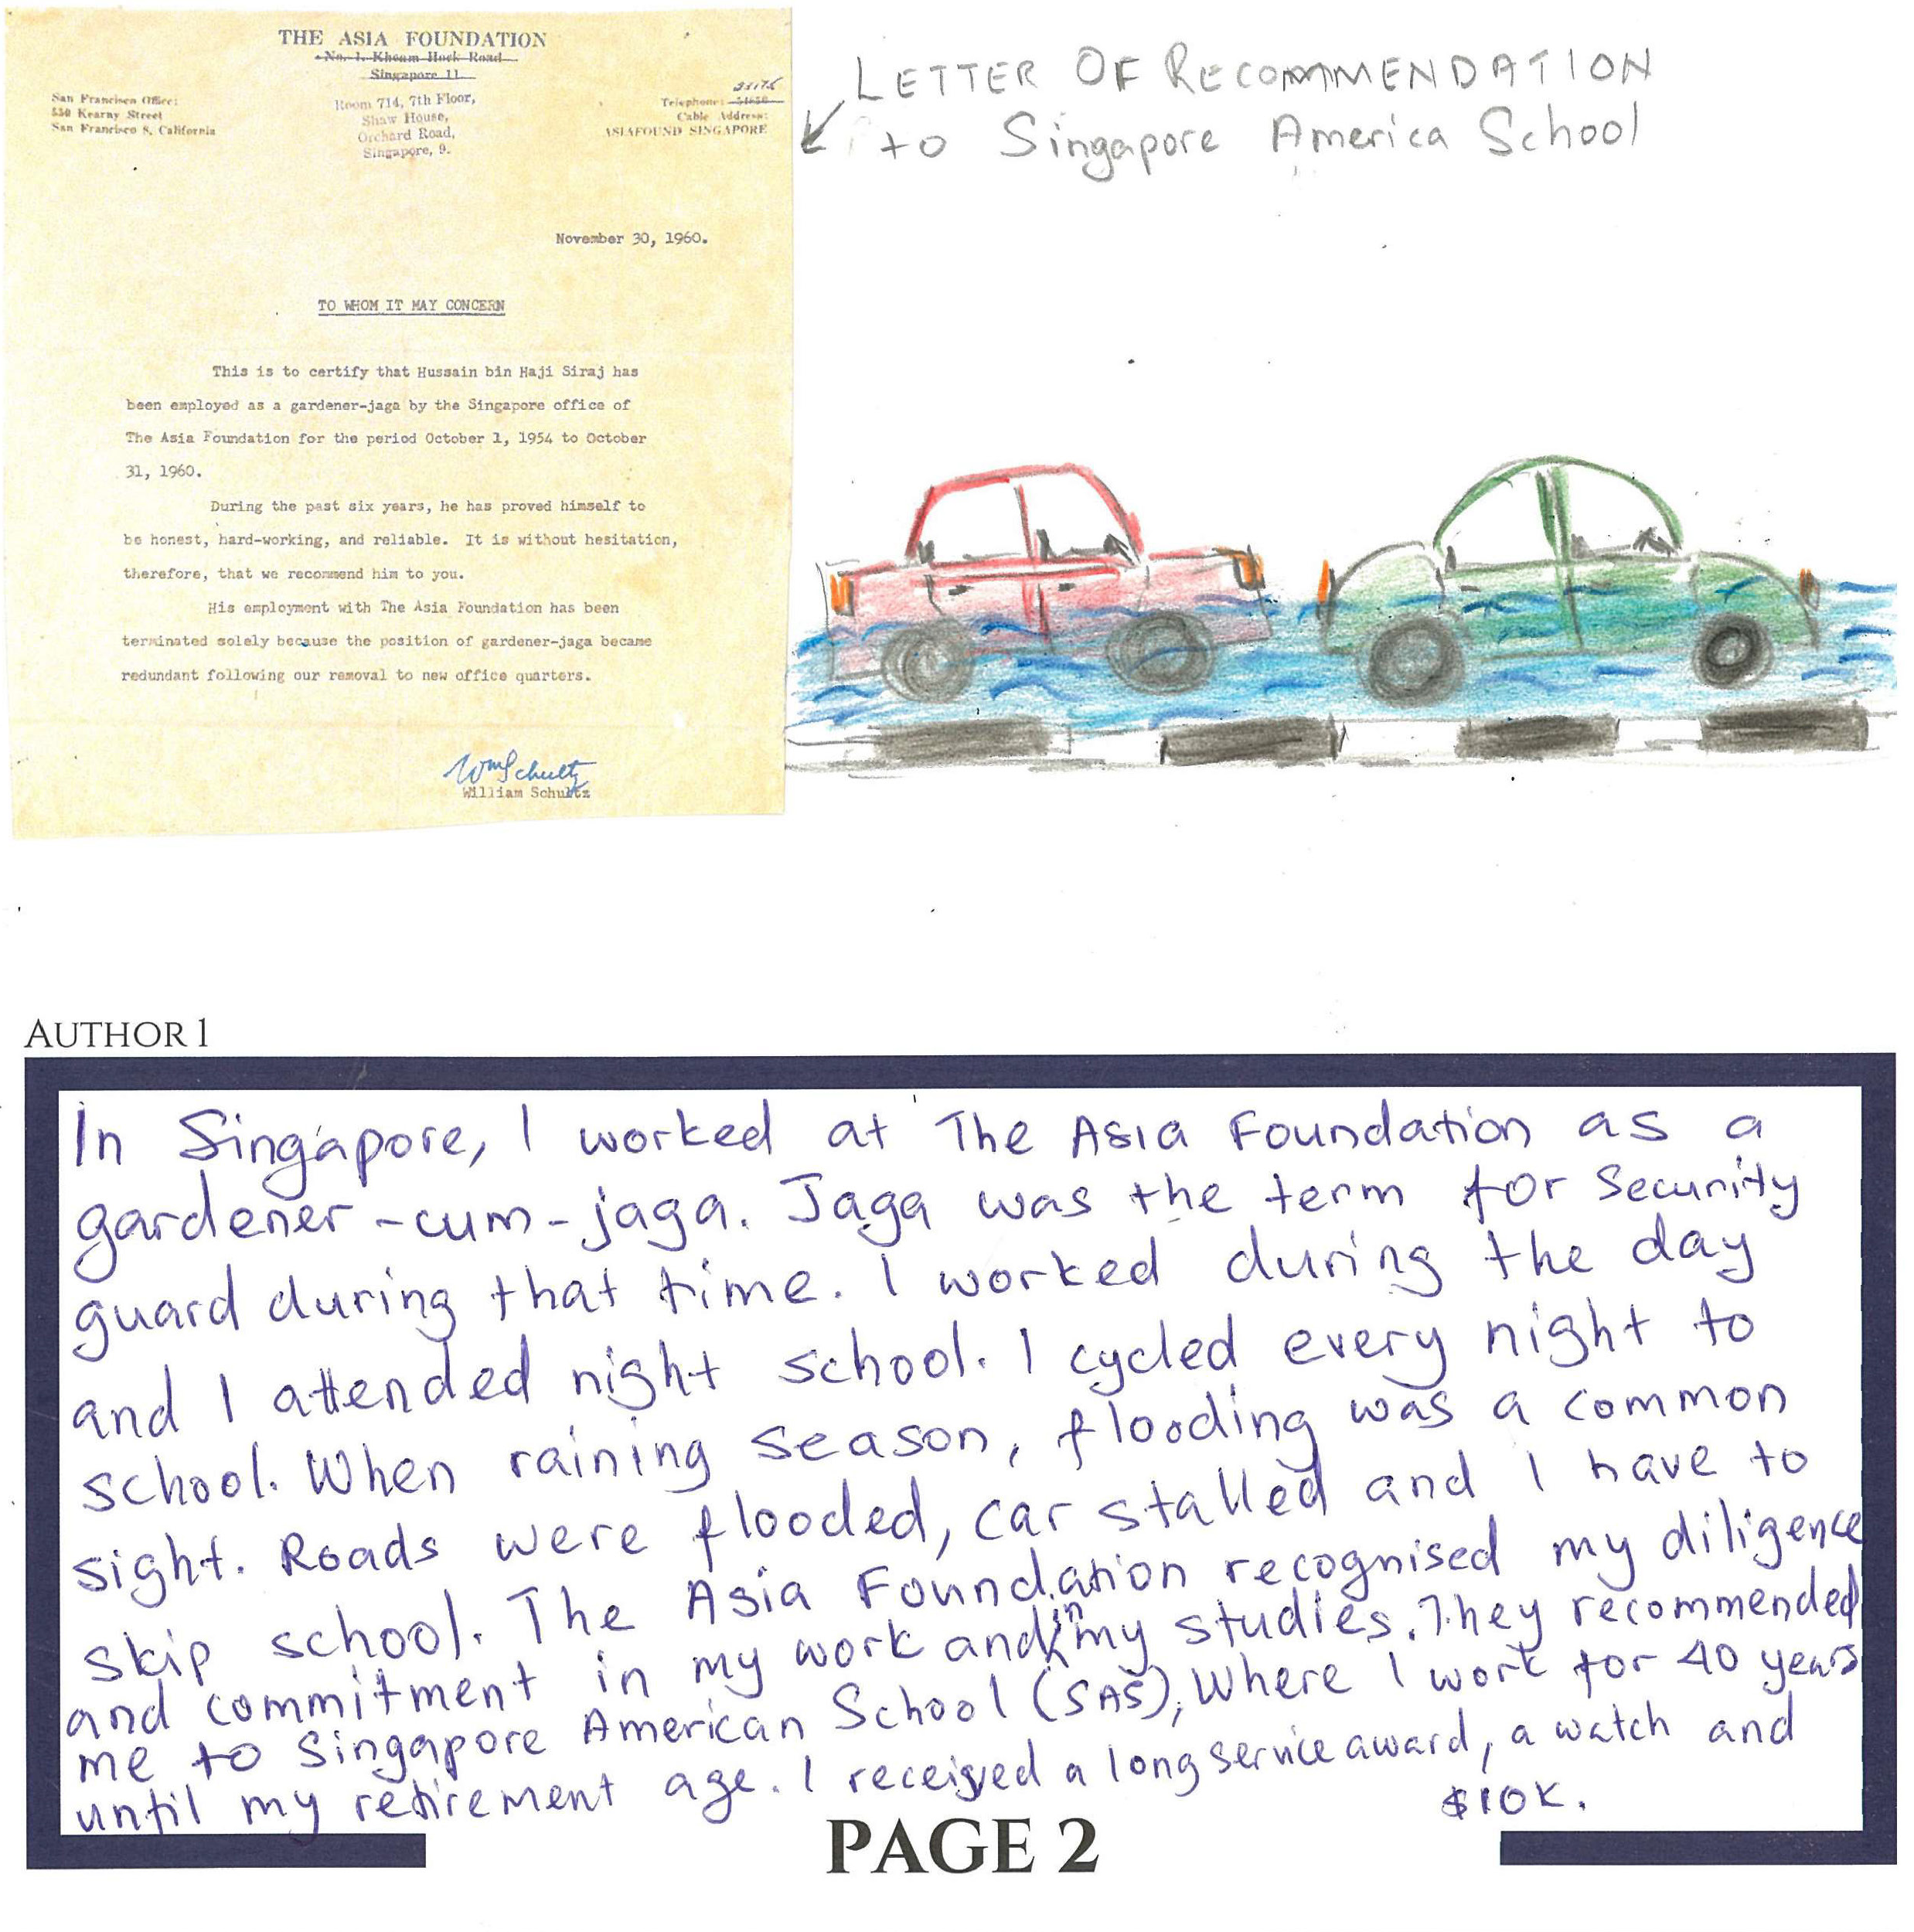 THE ASIA FOUNDATION
No. 1, Kheam Hock Road
Singapore 11
San Francisco Office:
550 Kearny Street
San Francisco 8, California
Room 714, 7th Floor,
Shaw House,
Orchard Road,
Singapore, 9.
Telephone:
Cable Address:
ASIAFOUND SINGAPORE
November 30, 1960.
TO WHOM IT MAY CONCERN
This is to certify that Hussain bin Haji Siraj has
been employed as a gardener-jaga by the Singapore office of
The Asia Foundation for the period October 1, 1954 to October
31, 1960.
During the past six years, he has proved himself to
be honest, hard-working, and reliable. It is without hesitation,
therefore, that we recommend him to you.
His employment with The Asia Foundation has been
terminated solely because the position of gardener-jaga became
redundant following our removal to new office quarters.
Wm Schultz
William Schultz
LETTER OF RECOMMENDATION
to Singapore America School
AUTHOR 1
In Singapore, I worked at The Asia Foundation as a
gardener-cum-jaga. Jaga was the term for security
guard during that time. I worked during the day
and I attended night school. I cycled every night to
school. When raining season, flooding was a common
sight. Roads were flooded, car stalled and I have to
skip school. The Asia Foundation recognised my diligence
and commitment in my work and in my studies. They recommended
me to Singapore American School (SAS), Where I work for 40 years
until my retirement age. I received a long service award, a watch and
$10K.
PAGE 2